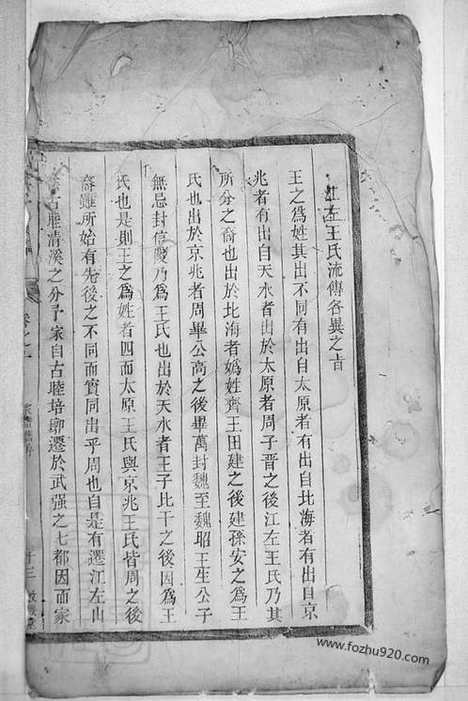 江左王氏流傳各異之旨
王之爲姓其出不同有出自太原者有出自北海者有出自京
兆者有出自天水者出於太原者周子晋之後江左王氏乃其
所分之裔也出於北海者嬀姓齊王田建之後建孫安之爲王
氏也出於京兆者周畢公高之後畢萬封魏至魏昭王生公子
無忌封信陵乃爲王氏也出於天水者王子比干之後因爲王
氏也是則王之爲姓者四而太原王氏與京兆王氏皆周之後
裔雖所始有先後之不同而實同出乎周也自是有遷江左山
古睦清溪之分予家自古睦培廓遷於武强之七都因而家
卷之二
十三
www.fozhu920.com